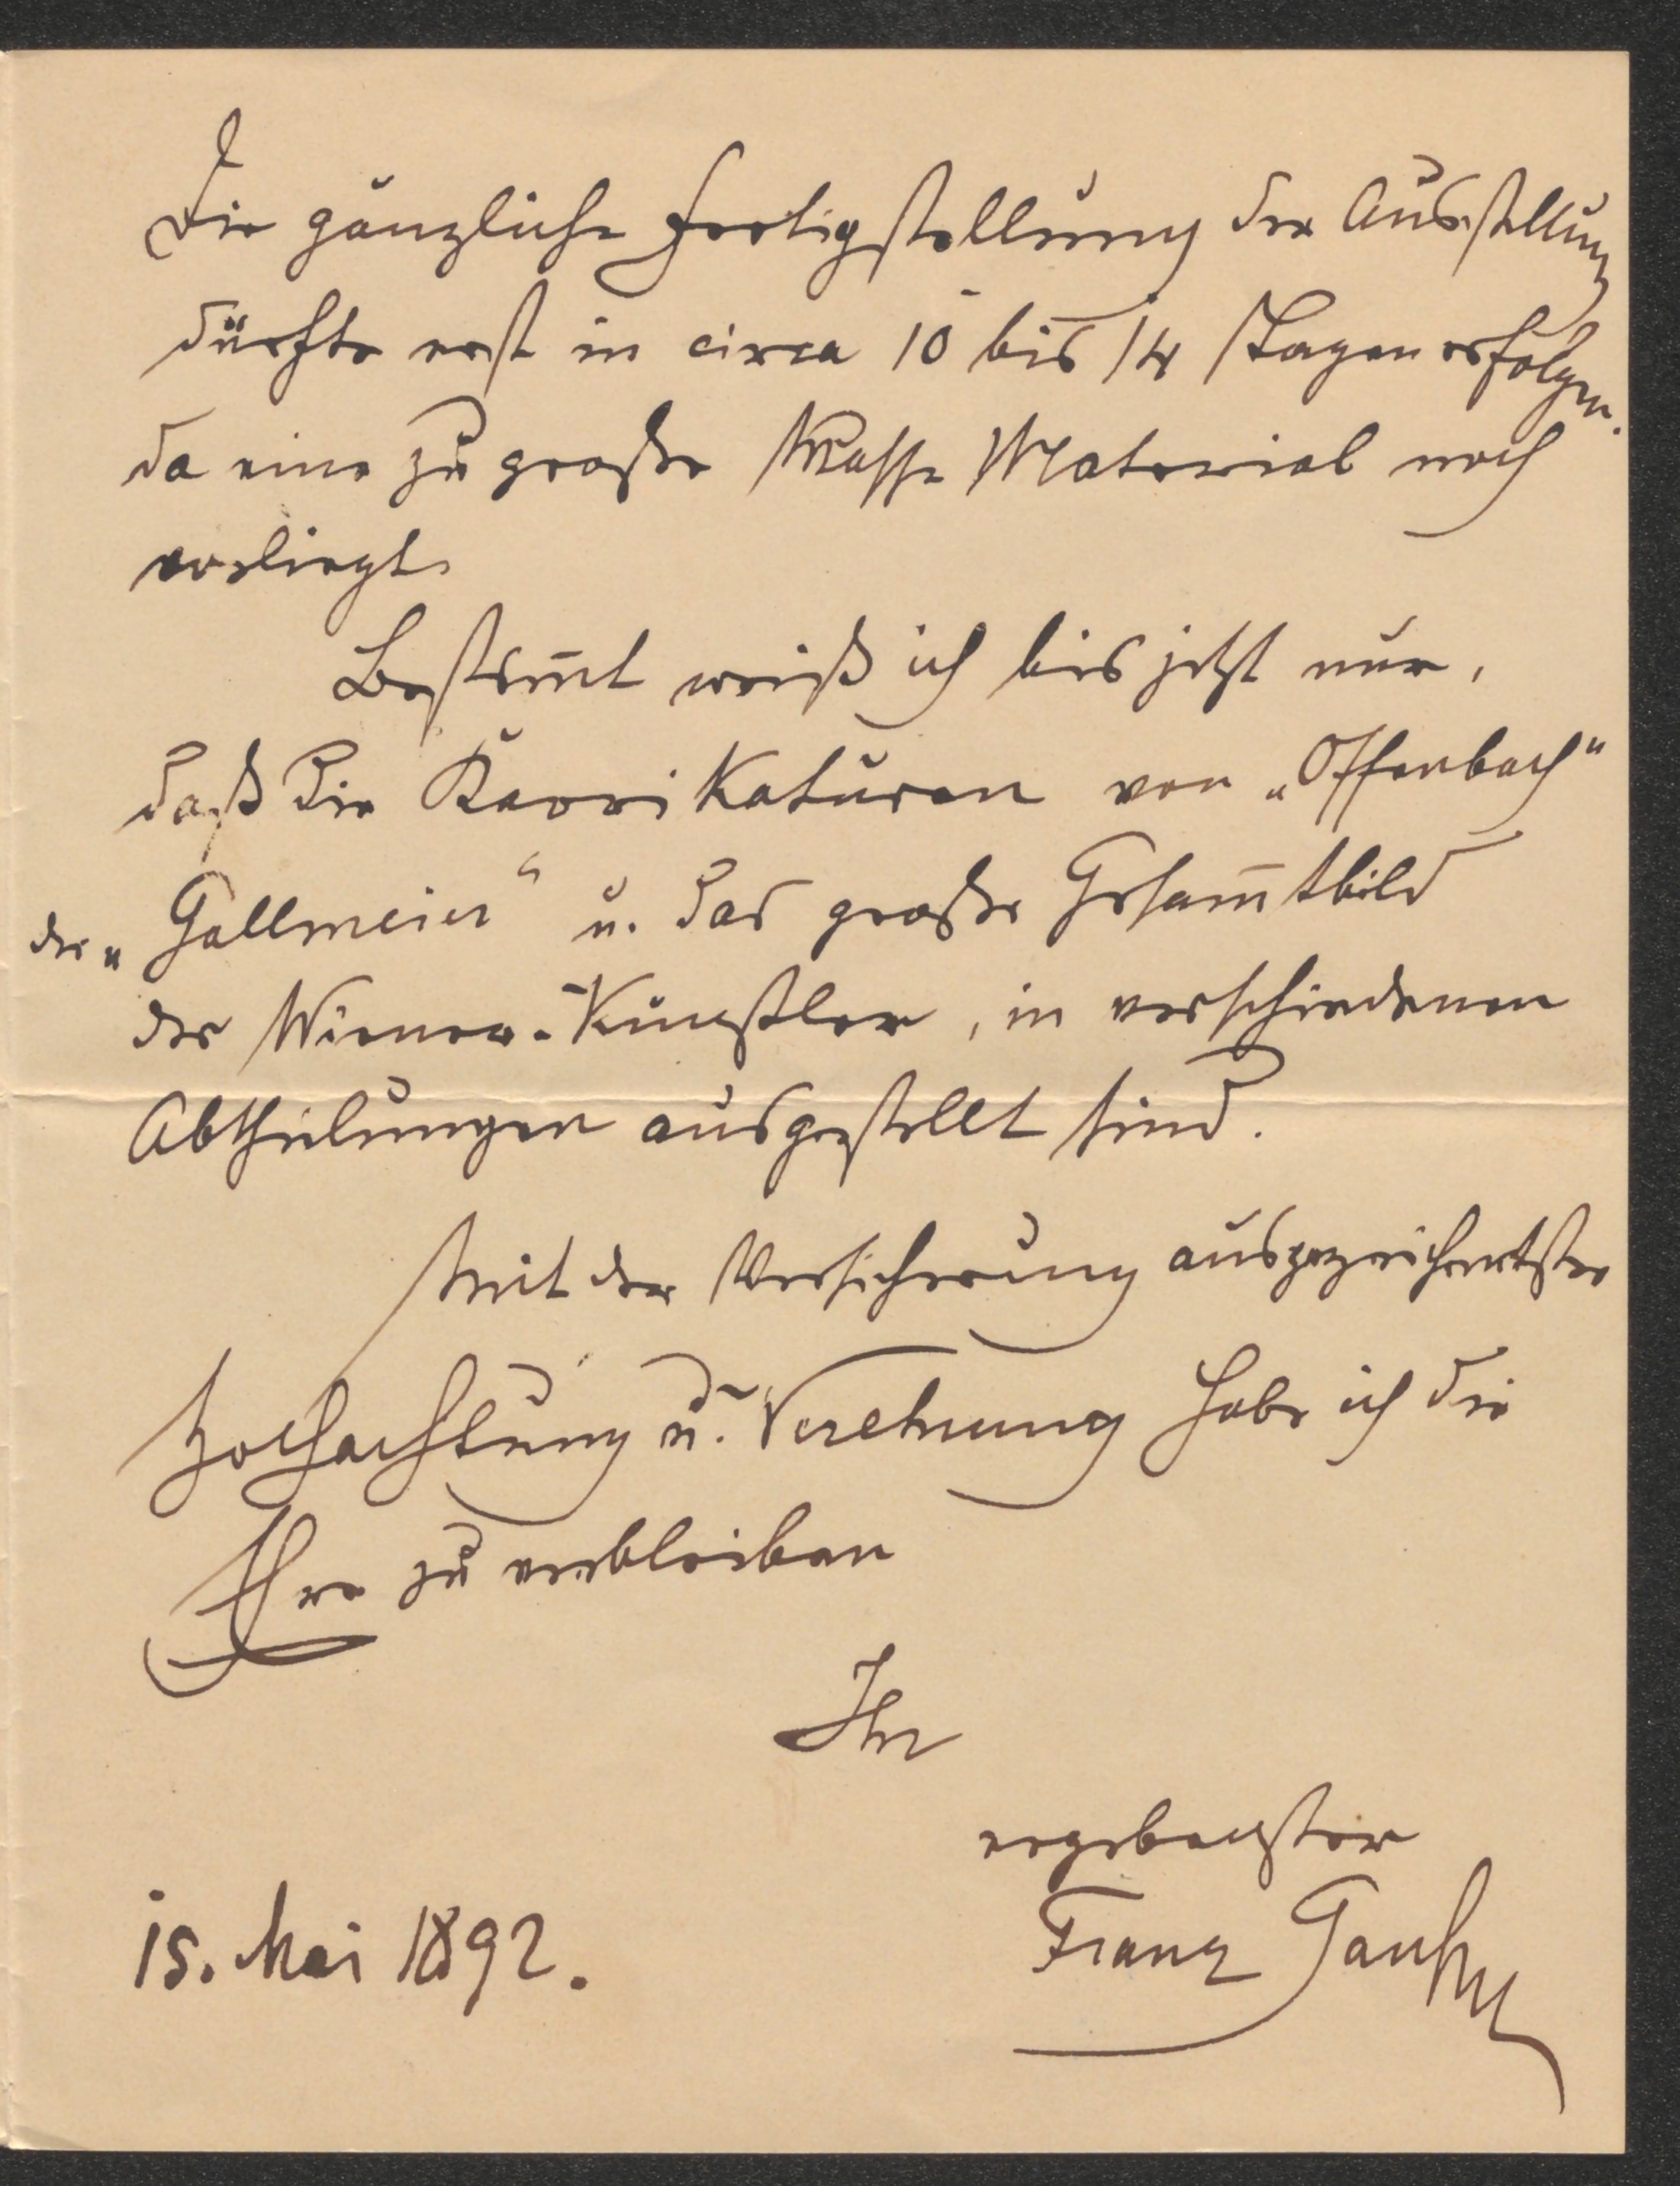 Die gänzliche Fertigstellung der Ausstellung
dürfte erst in circa 10 bis 14 Tagen erfolgen.
da eine zu große Masse Material noch
vorliegt.
Bestim̄t weiß ich bis jetzt nur,
daß die Karrikaturen von „Offenbach“
der „Gallmeier“ u. das große Gesam̄tbild
der Wiener-Künstler, in verschiedenen
Abtheilungen ausgestellt sind.
Mit der Versicherung ausgezeichnetster
Hochachtung u. Verehrung habe ich die
Ehre zu verbleiben
Ihr
ergebenster
15. Mai 1892.
Franz Gaul